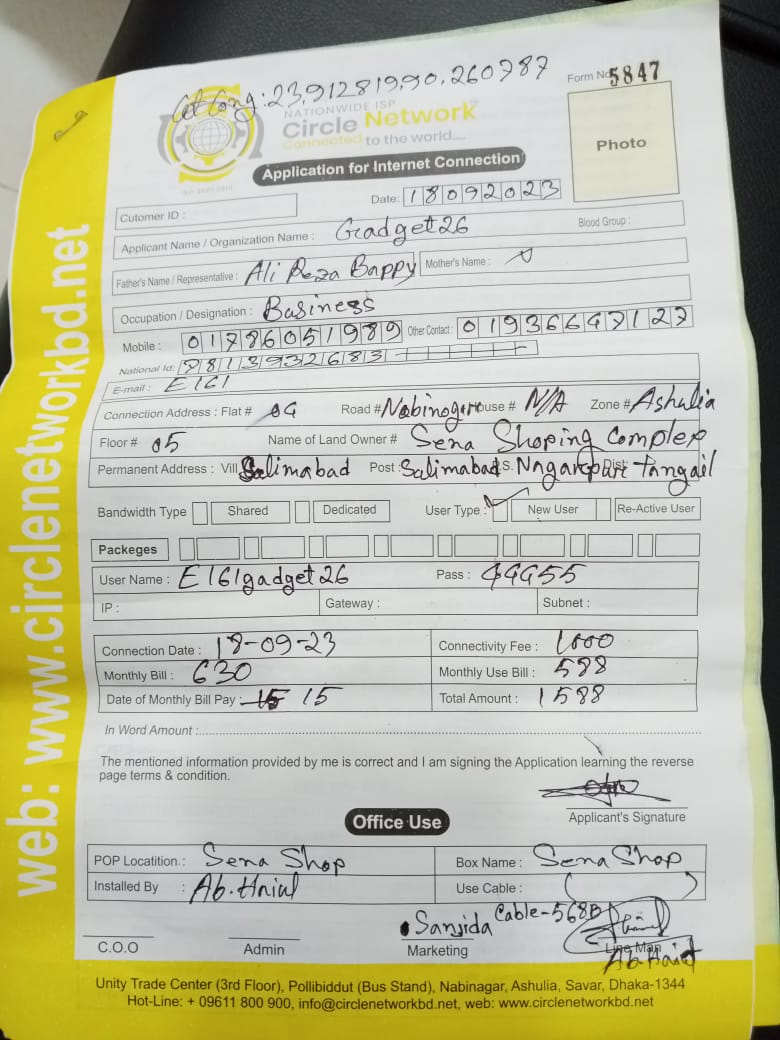 Form No 5847
Lat Long: 23.912819,90.260787
NATIONWIDE ISP
Circle Network
Connected to the world....
Photo
Application for Internet Connection
Date: 18092023
Cutomer ID :
Applicant Name / Organization Name : Gadget26 Blood Group :
Father's Name / Representative : Ali Reza Bappy Mother's Name :
Occupation / Designation : Business
Mobile : 01786051989 Other Contact : 01936647127
National Id: 7813932683
E-mail : E161
Connection Address : Flat # 04 Road # Nabinogor House # N/A Zone # Ashulia
Floor # 05 Name of Land Owner # Sena Shoping Complex
Permanent Address : Vill Salimabad Post : Salimabad P.S. Nagarpur Dist: Tangail
Bandwidth Type Shared Dedicated User Type : New User Re-Active User
Packeges
User Name : E161gadget26 Pass : 44455
IP : Gateway : Subnet :
Connection Date : 18-09-23 Connectivity Fee : 1000
Monthly Bill : 630 Monthly Use Bill : 588
Date of Monthly Bill Pay : 15 Total Amount : 1588
In Word Amount :
The mentioned information provided by me is correct and I am signing the Application learning the reverse
page terms & condition.
Applicant's Signature
Office Use
POP Locatition.: Sena Shop Box Name : Sena Shop
Installed By : Use Cable :
Sanjida Cable-568B
C.O.O Admin Marketing Line Man
Unity Trade Center (3rd Floor), Pollibiddut (Bus Stand), Nabinagar, Ashulia, Savar, Dhaka-1344
Hot-Line: + 09611 800 900, info@circlenetworkbd.net, web: www.circlenetworkbd.net
web: www.circlenetworkbd.net